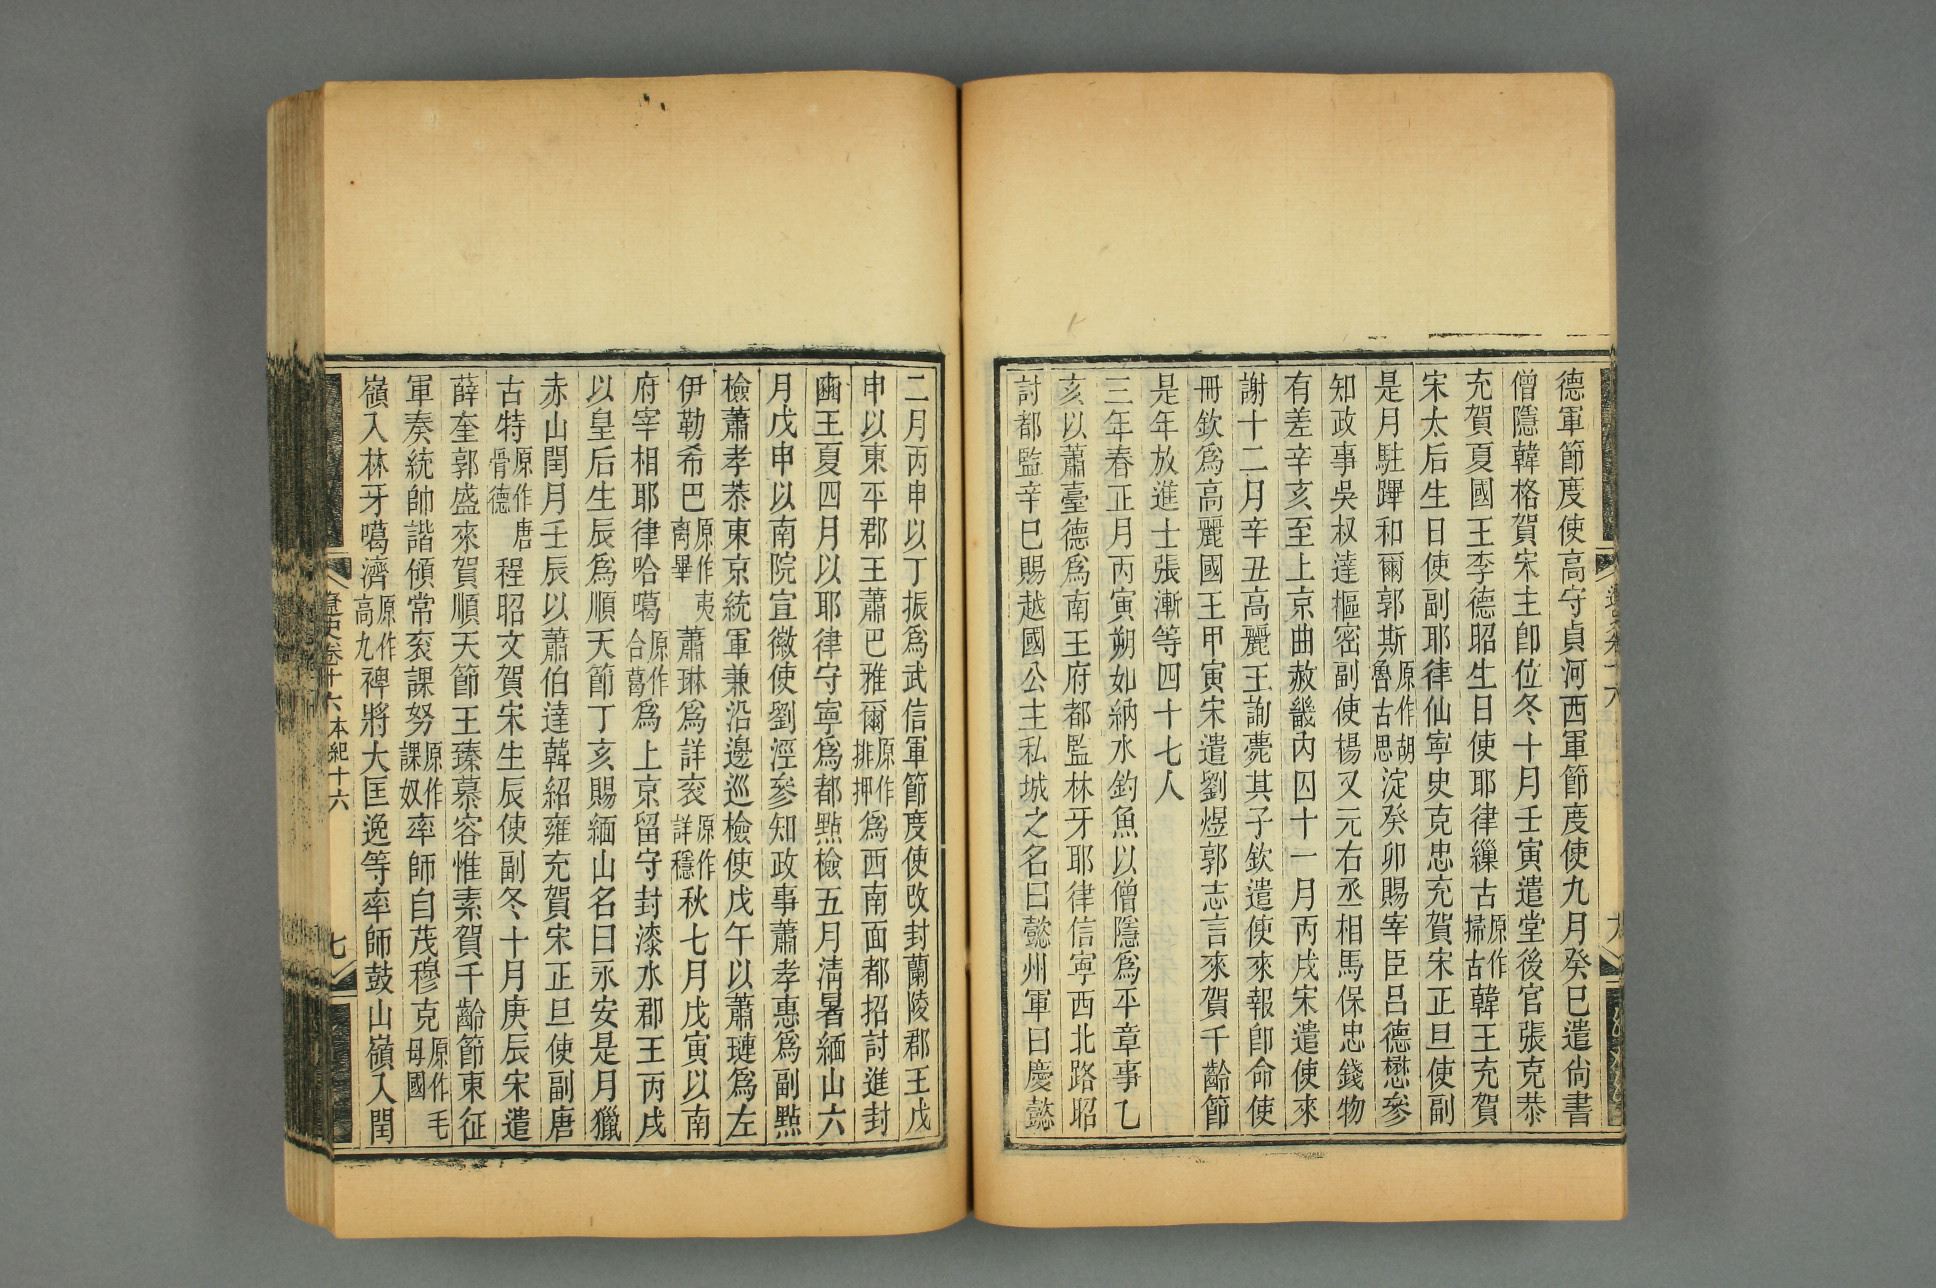 德軍節度使高守貞河西軍節度使九月癸巳遣尙書
僧隱韓格賀宋主卽位冬十月壬寅遣堂後官張克恭
充賀夏國王李德昭生日使耶律繅古原作掃古韓王充賀
宋太后生日使副耶律仙寧史克忠充賀宋正旦使副
是月駐蹕和爾郭斯原作胡魯古思淀癸卯賜宰臣呂德懋參
知政事吳叔達樞密副使楊又元右丞相馬保忠錢物
有差辛亥至上京曲赦畿內囚十一月丙戌宋遣使來
謝十二月辛丑高麗王詢薨其子欽遣使來報卽命使
冊欽爲高麗國王甲寅宋遣劉煜郭志言來賀千齡節
是年放進士張漸等四十七人
三年春正月丙寅朔如納水釣魚以僧隱爲平章事乙
亥以蕭臺德爲南王府都監林牙耶律信寧西北路昭
討都監辛巳賜越國公主私城之名曰懿州軍曰慶懿
二月丙申以丁振爲武信軍節度使改封蘭陵郡王戊
申以東平郡王蕭巴雅爾原作排押爲西南面都招討進封
豳王夏四月以耶律守寧爲都點檢五月淸暑緬山六
月戊申以南院宣徽使劉涇參知政事蕭孝惠爲副點
檢蕭孝恭東京統軍兼沿邊巡檢使戊午以蕭璉爲左
伊勒希巴原作夷离畢蕭琳爲詳袞原作詳穩秋七月戊寅以南
府宰相耶律哈噶原作合葛爲上京留守封漆水郡王丙戌
以皇后生辰爲順天節丁亥賜緬山名曰永安是月獵
赤山閏月壬辰以蕭伯達韓紹雍充賀宋正旦使副唐
古特原作唐骨德程昭文賀宋生辰使副冬十月庚辰宋遣
薛奎郭盛來賀順天節王臻慕容惟素賀千齡節東征
軍奏統帥諧領常袞課努原作課奴率師自茂穆克原作毛母國
嶺入林牙噶濟原作高九裨將大匡逸等率師鼓山嶺入閏
遼史卷十六 本紀十六 七